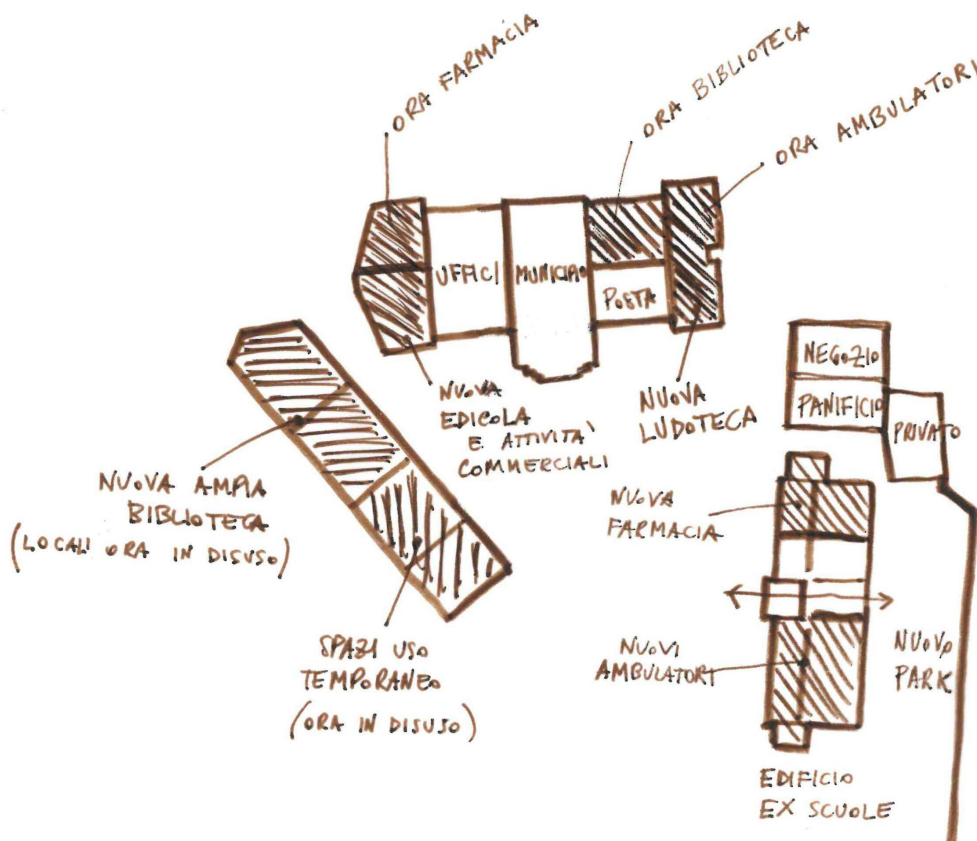 ORA FARMACIA
ORA BIBLIOTECA
ORA AMBULATORI
UFFICI
MUNICIPIO
POSTA
NUOVA
EDICOLA
E ATTIVITA'
COMMERCIALI
NUOVA
LUDOTECA
NEGOZIO
PANIFICIO
PRIVATO
NUOVA AMPIA
BIBLIOTECA
(LOCALI ORA IN DISUSO)
NUOVA
FARMACIA
SPAZI USO
TEMPORANEO
(ORA IN DISUSO)
NUOVI
AMBULATORI
NUOVO
PARK
EDIFICIO
EX SCUOLE